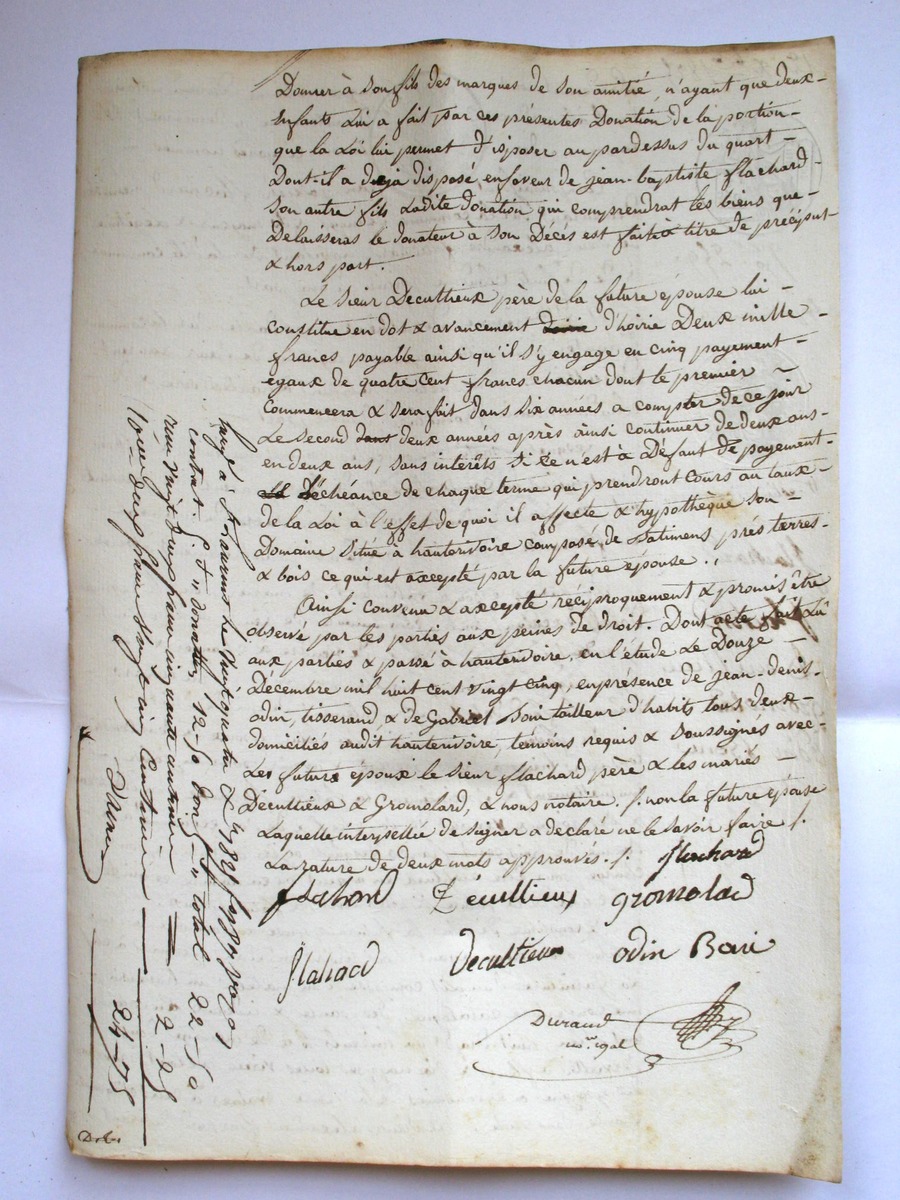 Donner à son fils des marques de son amitié, n'ayant que deux-
Enfants Lui a fait par ces présentes Donation de la portion-
que la Loi lui permet d'isposer au pardessus du quart-
Dont-il a deja disposé, en faveur de jean-baptiste flachard-
son autre fils Ladite donation qui comprendrat les biens que-
Delaisseras le donateur à son Décès est faite à titre de préciput
& hors part.
Le Sieur Decultieux père de la future épouse lui-
constitue en dot & avancement d'hoirie Deux mille-
francs payable ainsi qu'il s'y engage en cinq payement-
egaux de quatre cent francs chacun dont le premier-
commencera & sera fait dans six années a compter de ce jour
Le second deux années après ainsi continuer de deux ans-
en deux ans, sans intérêts si ce n'est à Défaut de payement-
D'échéance de chaque terme qui prendront cours au taux-
de la Loi à l'effet de quoi il affecte & hypothèque son-
Domaine situé à hauterivoire composé, de Batimens, prés terres-
& bois ce qui est accepté par la future épouse.
Ainsi convenu & accepté réciproquement & promis être
observé par les parties aux peines de droit. Dont acte fait Lû
aux parties & passé à hauterivoire, en l'étude Le Douze-
Décembre mil huit cent vingt cinq, en présence de jean-denis-
odin, tisserand & de Gabriel tailleur d'habits tous deux-
domiciliés audit hauterivoire, témoins requis & soussignés avec-
Les futurs épouse le sieur flachard père & les mariés-
Décultieux & Gromolard, & nous notaire. /. non la future épouse
Laquelle interpellée de signer a declaré ne le savoir faire /.
La rature de deux mots approuvés. /. flachard
flachard Décultieux gromolard
flachard Decultieux odin
Durand
contrat. donation 12-50 total 22-50
cinquante centimes 2-25
centimes 24-75